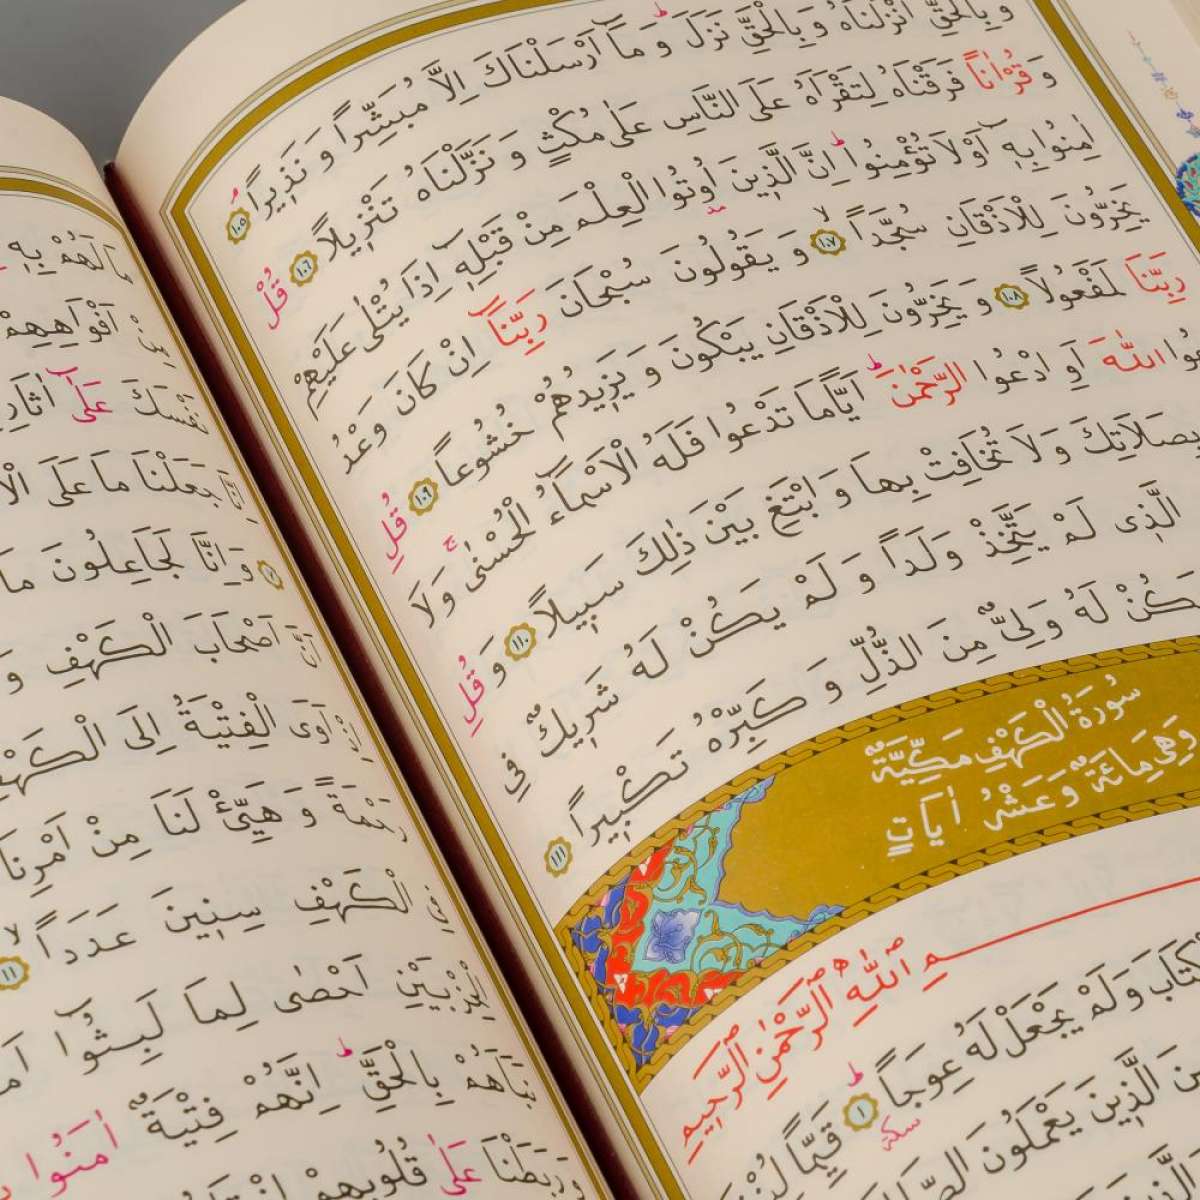 وَبِالْحَقِّ اَنْزَلْنَاهُ وَبِالْحَقِّ نَزَلَ وَمَٓا اَرْسَلْنَاكَ اِلَّا مُبَشِّرًا وَنَذ۪يرًا ﴿١٠٥﴾
وَقُرْاٰنًا فَرَقْنَاهُ لِتَقْرَاَهُ عَلَى النَّاسِ عَلٰى مُكْثٍ وَنَزَّلْنَاهُ تَنْز۪يلًا ﴿١٠٦﴾ قُلْ
اٰمِنُوا بِه۪ٓ اَوْ لَا تُؤْمِنُوا اِنَّ الَّذ۪ينَ اُوتُوا الْعِلْمَ مِنْ قَبْلِه۪ٓ اِذَا يُتْلٰى عَلَيْهِمْ
يَخِرُّونَ لِلْاَذْقَانِ سُجَّدًا ﴿١٠٧﴾ وَيَقُولُونَ سُبْحَانَ رَبِّنَٓا اِنْ كَانَ وَعْدُ
رَبِّنَا لَمَفْعُولًا ﴿١٠٨﴾ وَيَخِرُّونَ لِلْاَذْقَانِ يَبْكُونَ وَيَز۪يدُهُمْ خُشُوعًا ﴿١٠٩﴾ قُلِ
اللّٰهَ اَوِ ادْعُوا الرَّحْمٰنَ اَيًّا مَا تَدْعُوا فَلَهُ الْاَسْمَٓاءُ الْحُسْنٰى وَلَا
بِصَلَاتِكَ وَلَا تُخَافِتْ بِهَا وَابْتَغِ بَيْنَ ذٰلِكَ سَب۪يلًا ﴿١١٠﴾ وَقُلِ
الَّذ۪ي لَمْ يَتَّخِذْ وَلَدًا وَلَمْ يَكُنْ لَهُ شَر۪يكٌ فِي
يَكُنْ لَهُ وَلِيٌّ مِنَ الذُّلِّ وَكَبِّرْهُ تَكْب۪يرًا ﴿١١١﴾
سُورَةُ الْكَهْفِ مَكِّيَّةٌ
وَهِيَ مِائَةٌ وَعَشْرُ اٰيَاتٍ
بِسْمِ اللّٰهِ الرَّحْمٰنِ الرَّح۪يمِ
وَلَمْ يَجْعَلْ لَهُ عِوَجًا ﴿١﴾ سكتة
قَيِّمًا
الَّذ۪ينَ يَعْمَلُونَ
مَا لَهُمْ بِه۪
اَفْوَاهِهِمْ
نَفْسَكَ عَلٰٓى اٰثَارِ
جَعَلْنَا مَا عَلَى
﴿٧﴾ وَاِنَّا لَجَاعِلُونَ مَا
اَصْحَابَ الْكَهْفِ
اَوَى الْفِتْيَةُ اِلَى الْكَهْفِ
رَحْمَةً وَهَيِّئْ لَنَا مِنْ اَمْرِنَا
الْكَهْفِ سِن۪ينَ عَدَدًا ﴿١١﴾
الْحِزْبَيْنِ اَحْصٰى لِمَا لَبِثُٓوا
بِالْحَقِّ اِنَّهُمْ فِتْيَةٌ اٰمَنُوا
وَرَبَطْنَا عَلٰى قُلُوبِهِمْ